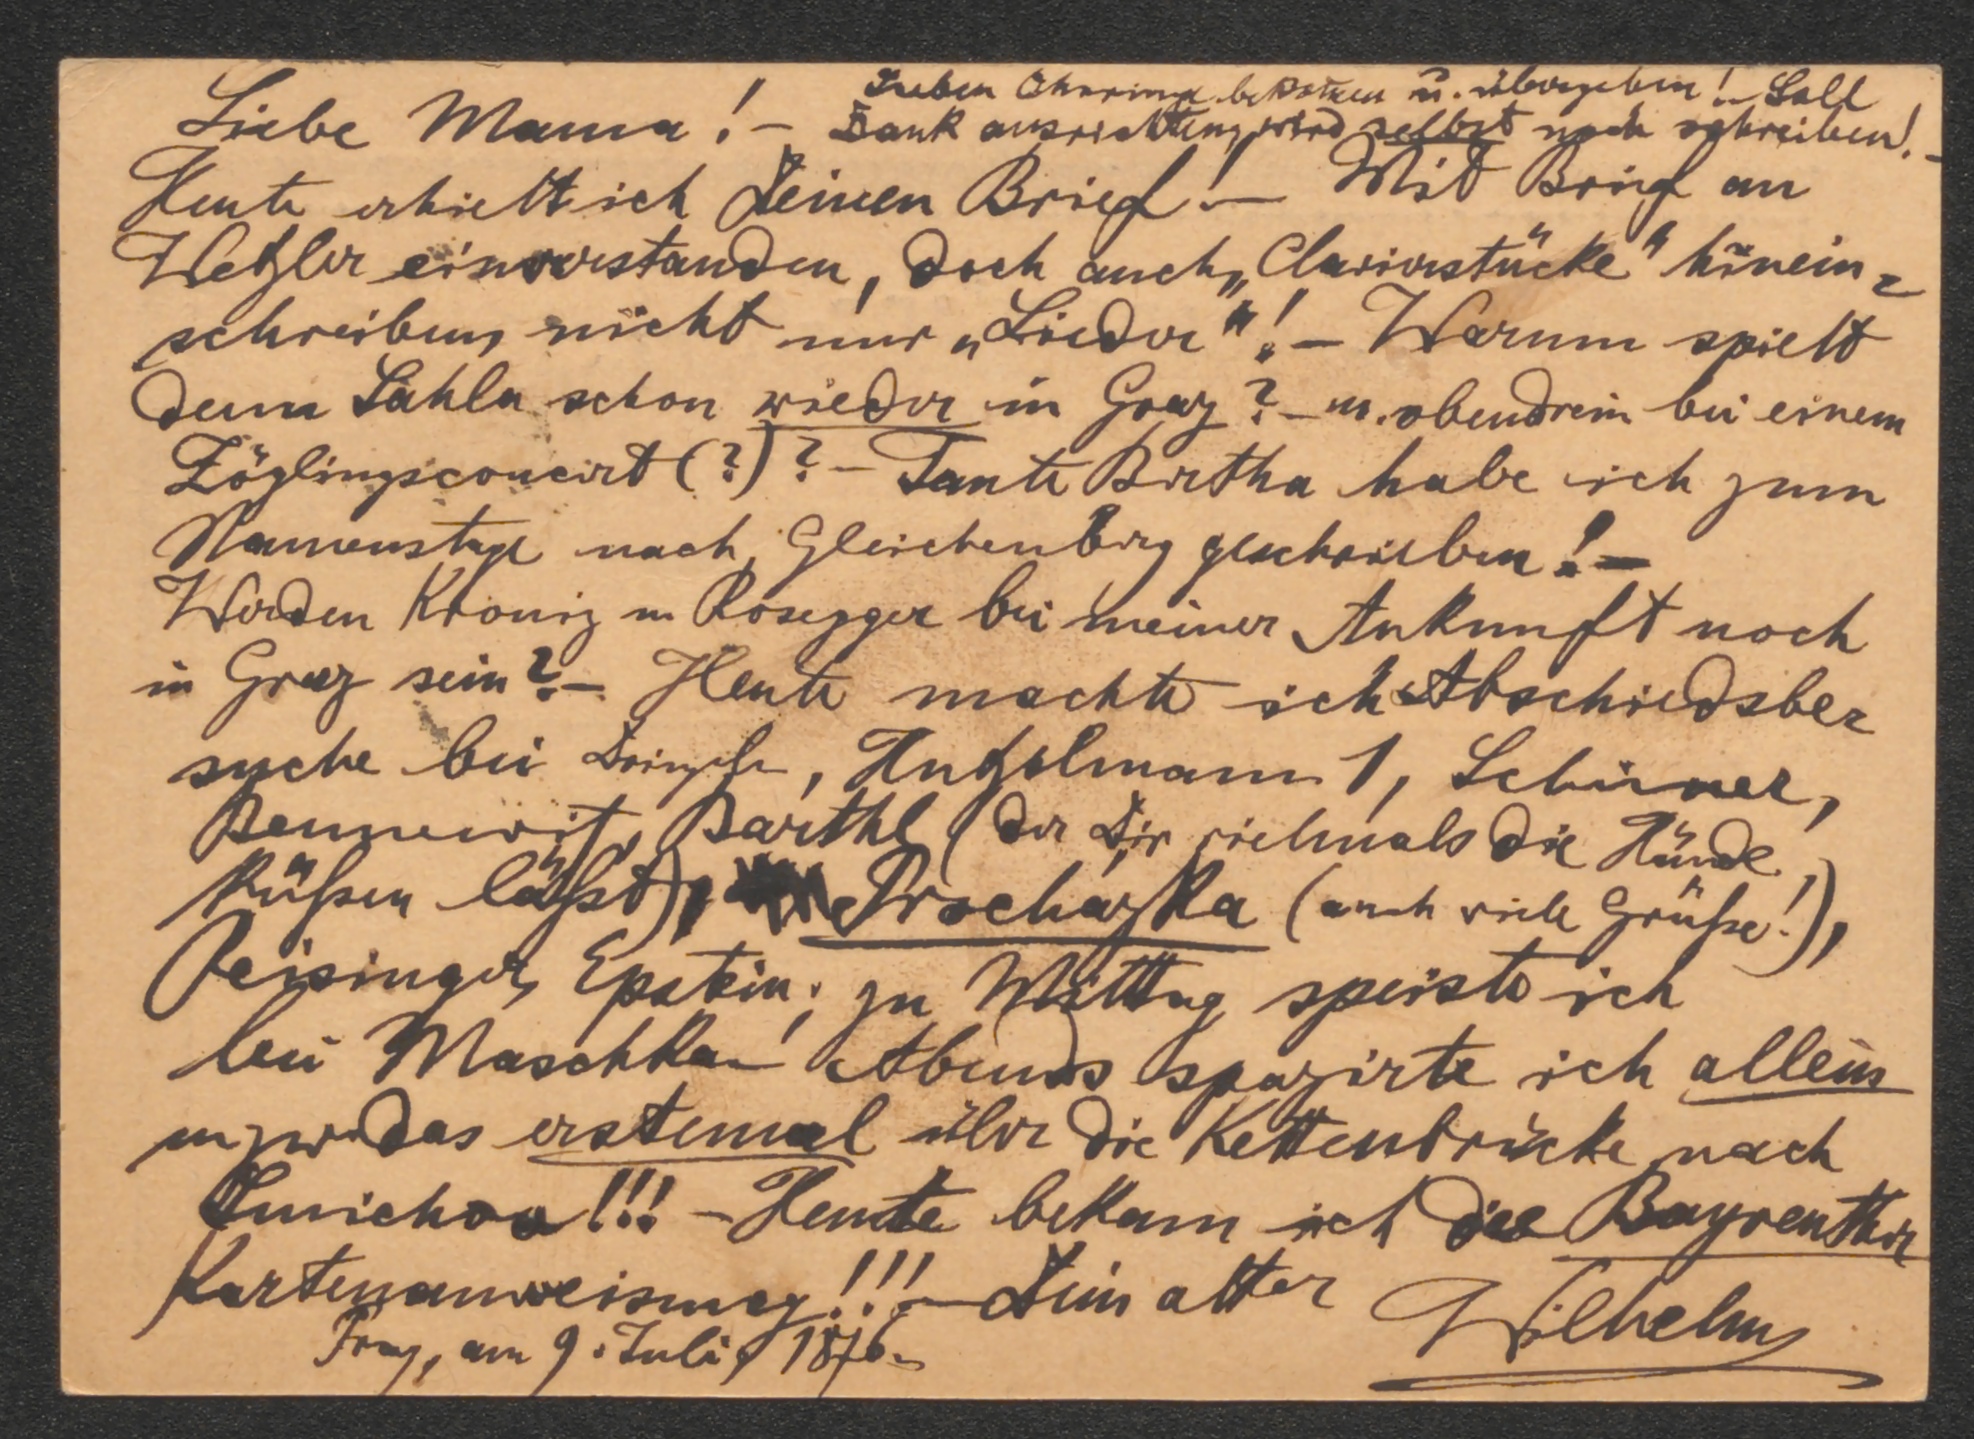 Lieben bekommen u. übergeben! Soll
Dank ausrichten, wird selbst noch schreiben! –
Liebe Mama! –
Heute erhielt ich Deinen Brief! – Mit Brief an
Wetzler einverstanden, doch auch „Clavierstücke“ hinein-
schreiben, nicht nur „Lieder“! – Warum spielt
denn Sahla schon wieder in Graz? – u. obendrein bei einem
Zöglingsconcert (?)? – Tante Bertha habe ich zum
Namenstage nach Gleichenberg geschrieben! –
Werden u Rosegger bei meiner Ankunft noch
in Graz sein? – Heute machte ich Abschiedsbe-
suche bei , 1, Schirmer,
Bennewitz, Barthl (der Dir vielmals die Hände
küßen läßt), Procházka (auch viele Grüße!),
Reisinger, Epstein; zu Mittag speiste ich
bei Maschka Abends spazirte ich allein
u. zw. das erstemal über die Kettenbrücke nach
Smichow!!! – Heute bekam ich die Bayreuther
Kartenanweisung!!! – Dein alter Wilhelm
Prag, am 9. Juli, 1876.